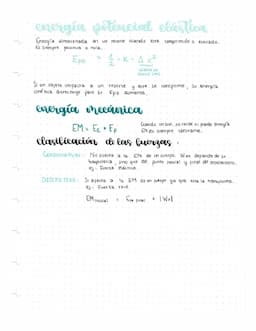 energía potencial elástica
Energía almacenada en un resorte cuando está comprimido o estirado.
Es siempre positiva o nula.
Epe = 1/2 · K · Δx²
Si un objeto impacta a un resorte y este se comprime, su energía
cinética disminuye pero su Epe aumenta.
energía mecánica
EM = Ec + Ep
Cuando no se pierde energía
EM es siempre constante.
clasificación de las fuerzas.
Conservativas: No afecta a la EM de un cuerpo. W no depende de su
trayectoria, sino que del punto inicial y final del movimiento.
ej: Fuerza eléctrica
Disipativas: Si afecta a la EM de un cuerpo ya que esta la transforma.
ej: Fuerza roce
EM inicial = EM final + |Wr|